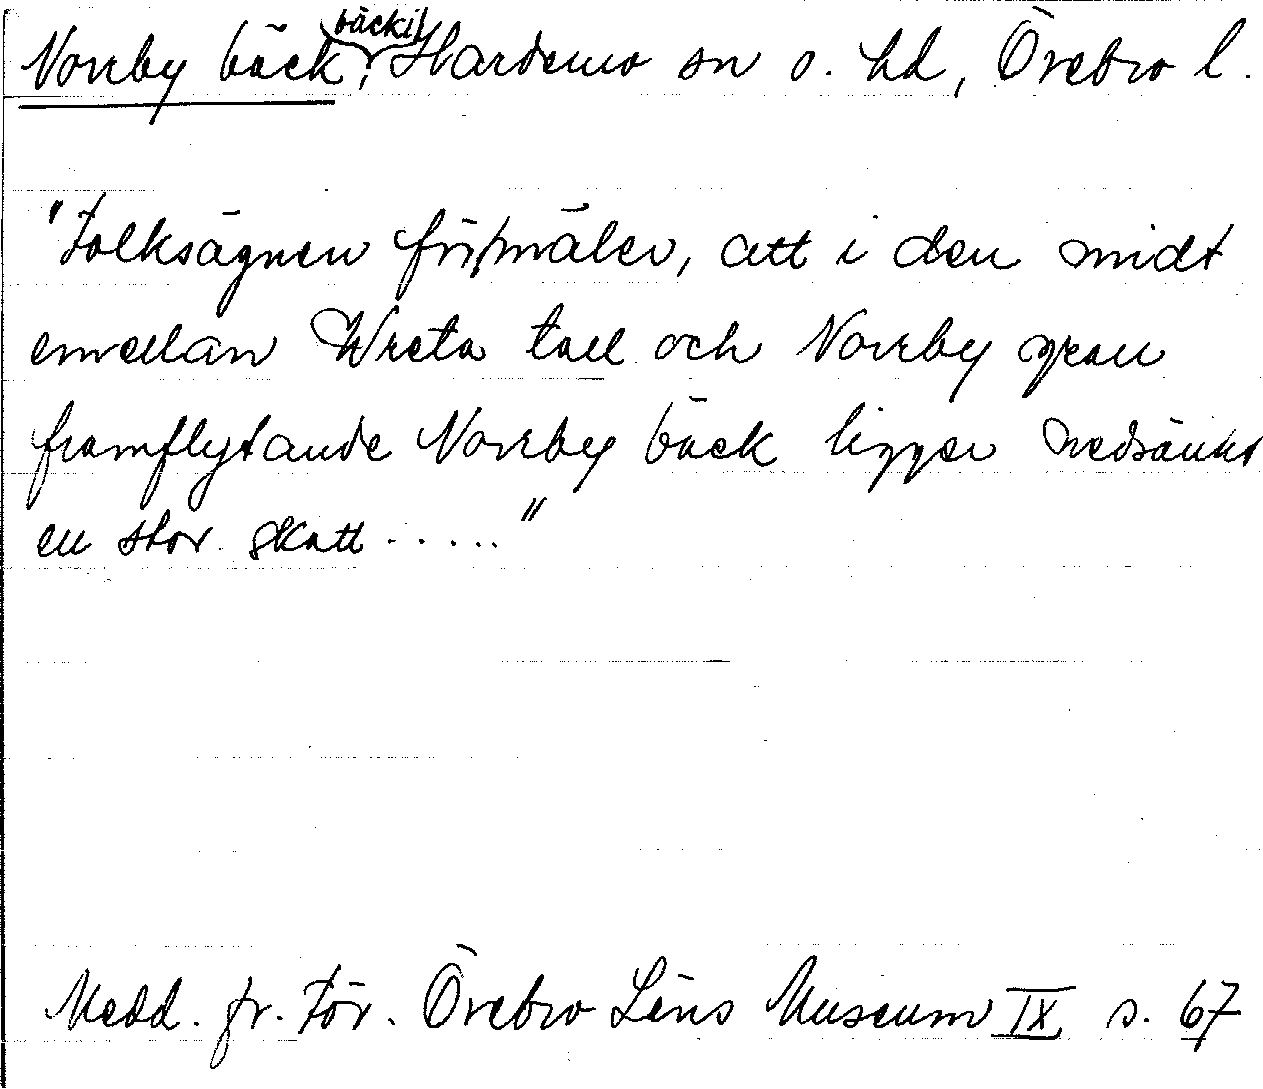 Norrby bäck, bäcki Hardemo sn o. hd, Örebro l.
"Folksägnen förmäler, att i den midt
emellan Wreta tall och Norrby gran
framflytande Norrby bäck ligger nedsänkt
en stor skatt ....."
Medd. fr. För. Örebro Läns Museum IX s. 67